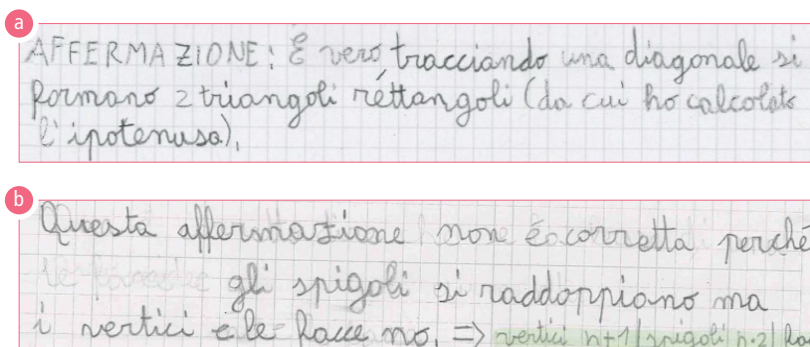 a
AFFERMAZIONE: È vero, tracciando una diagonale si
formano 2 triangoli rettangoli (da cui ho calcolato
l'ipotenusa).
b
Questa affermazione non è corretta perché
gli spigoli si raddoppiano ma
i vertici e le facce no. => vertici n+1/spigoli n·2/